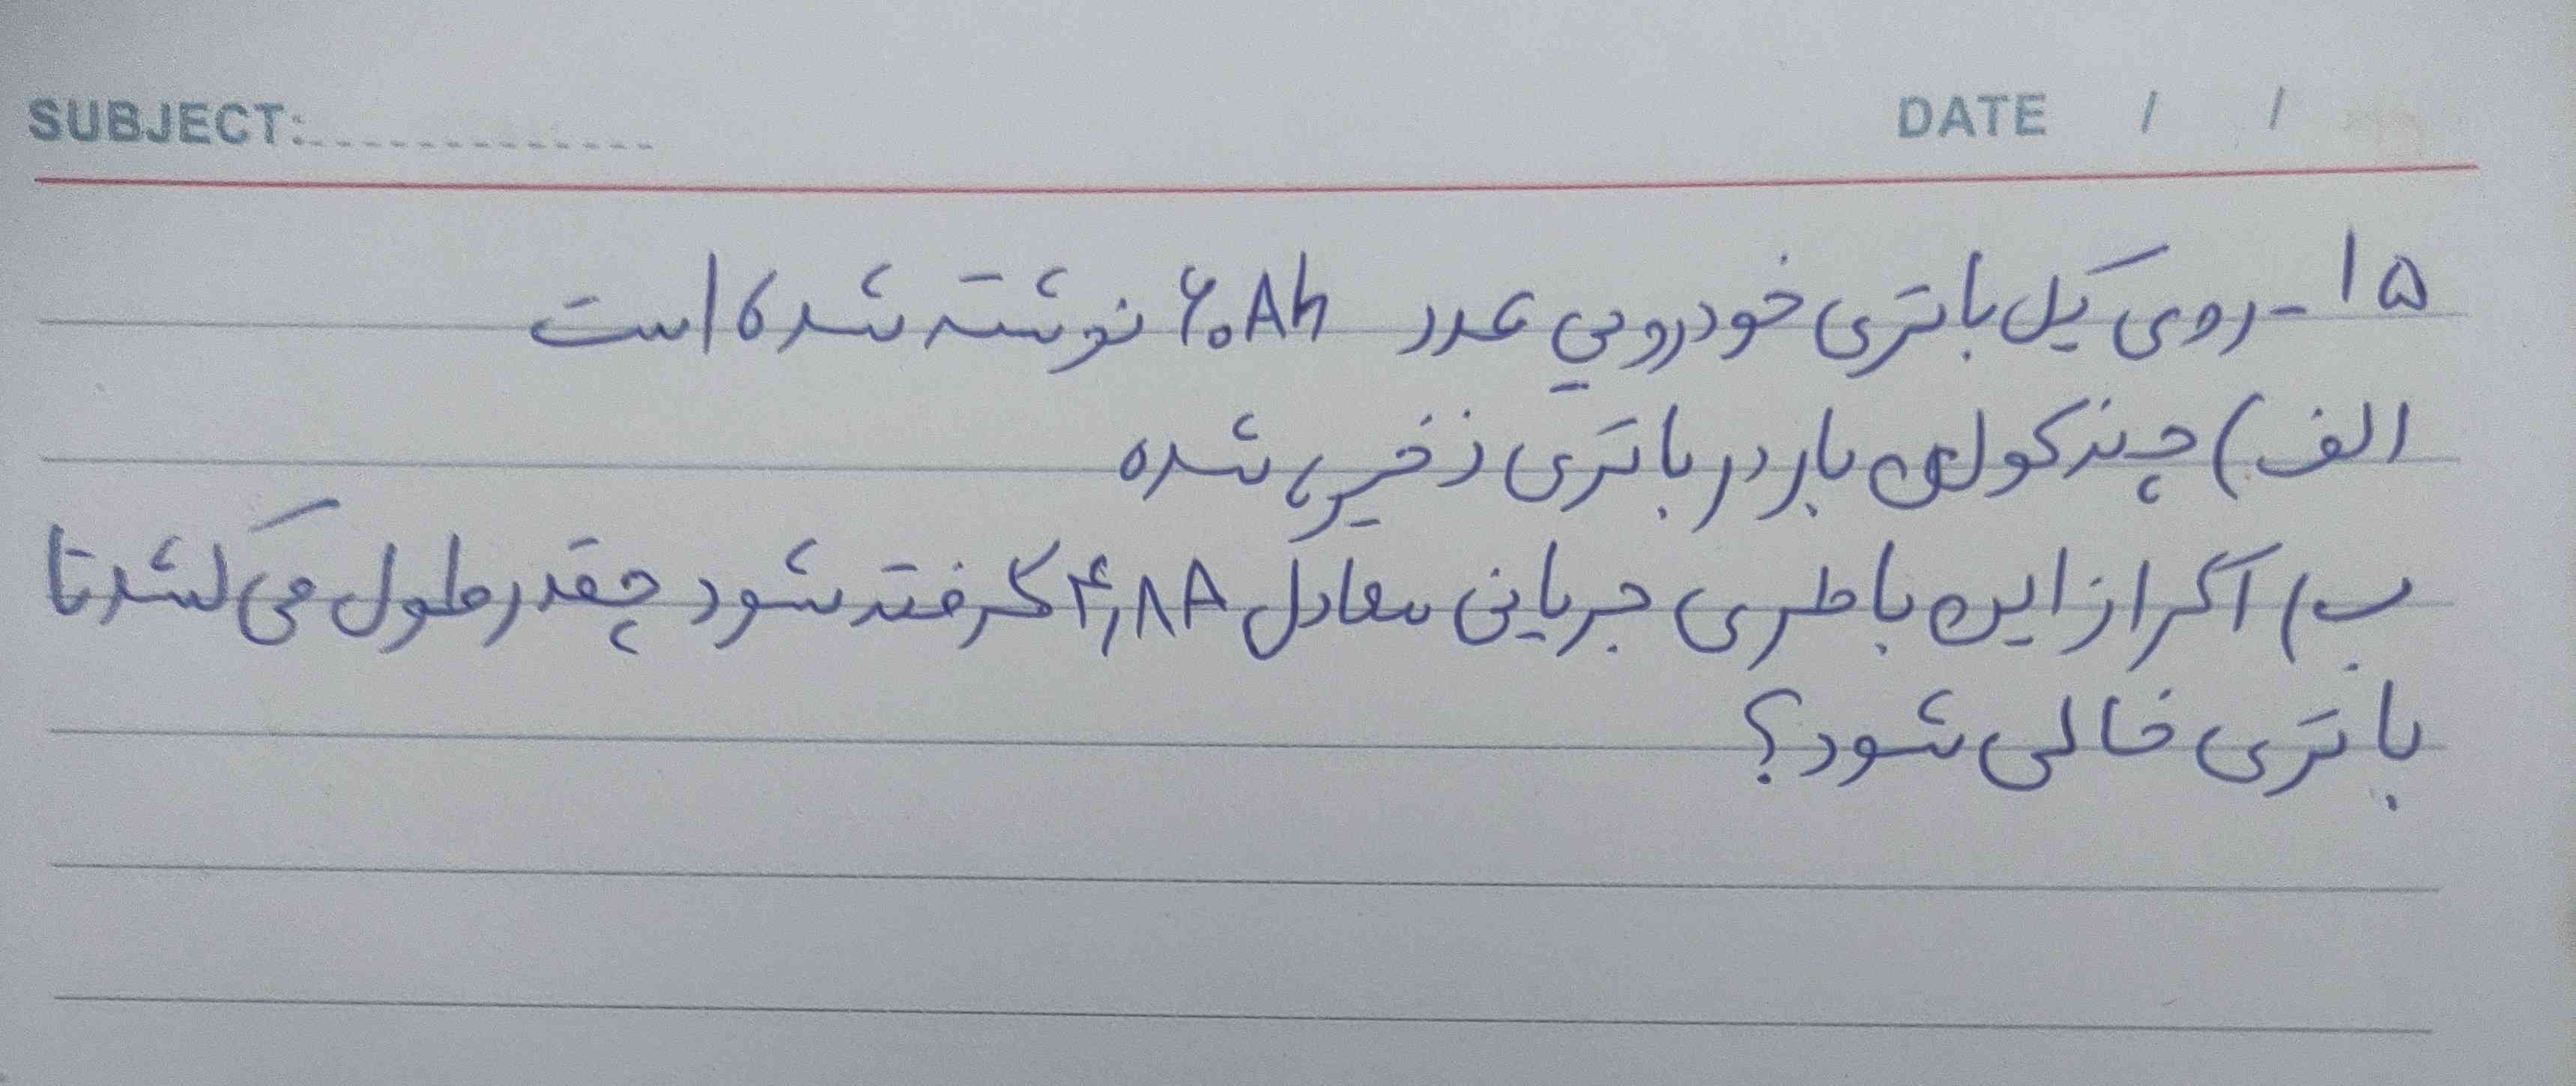 SUBJECT:............... DATE / /
۱۵-روی یک باتری خودرویی عدد ۶۰Ah نوشته شده است
الف) چند کولن بار در باتری ذخیره شده
ب) اگر از این باطری جریانی معادل ۴٫۸A گرفته شود چقدر طول می کشد تا
باتری خالی شود؟